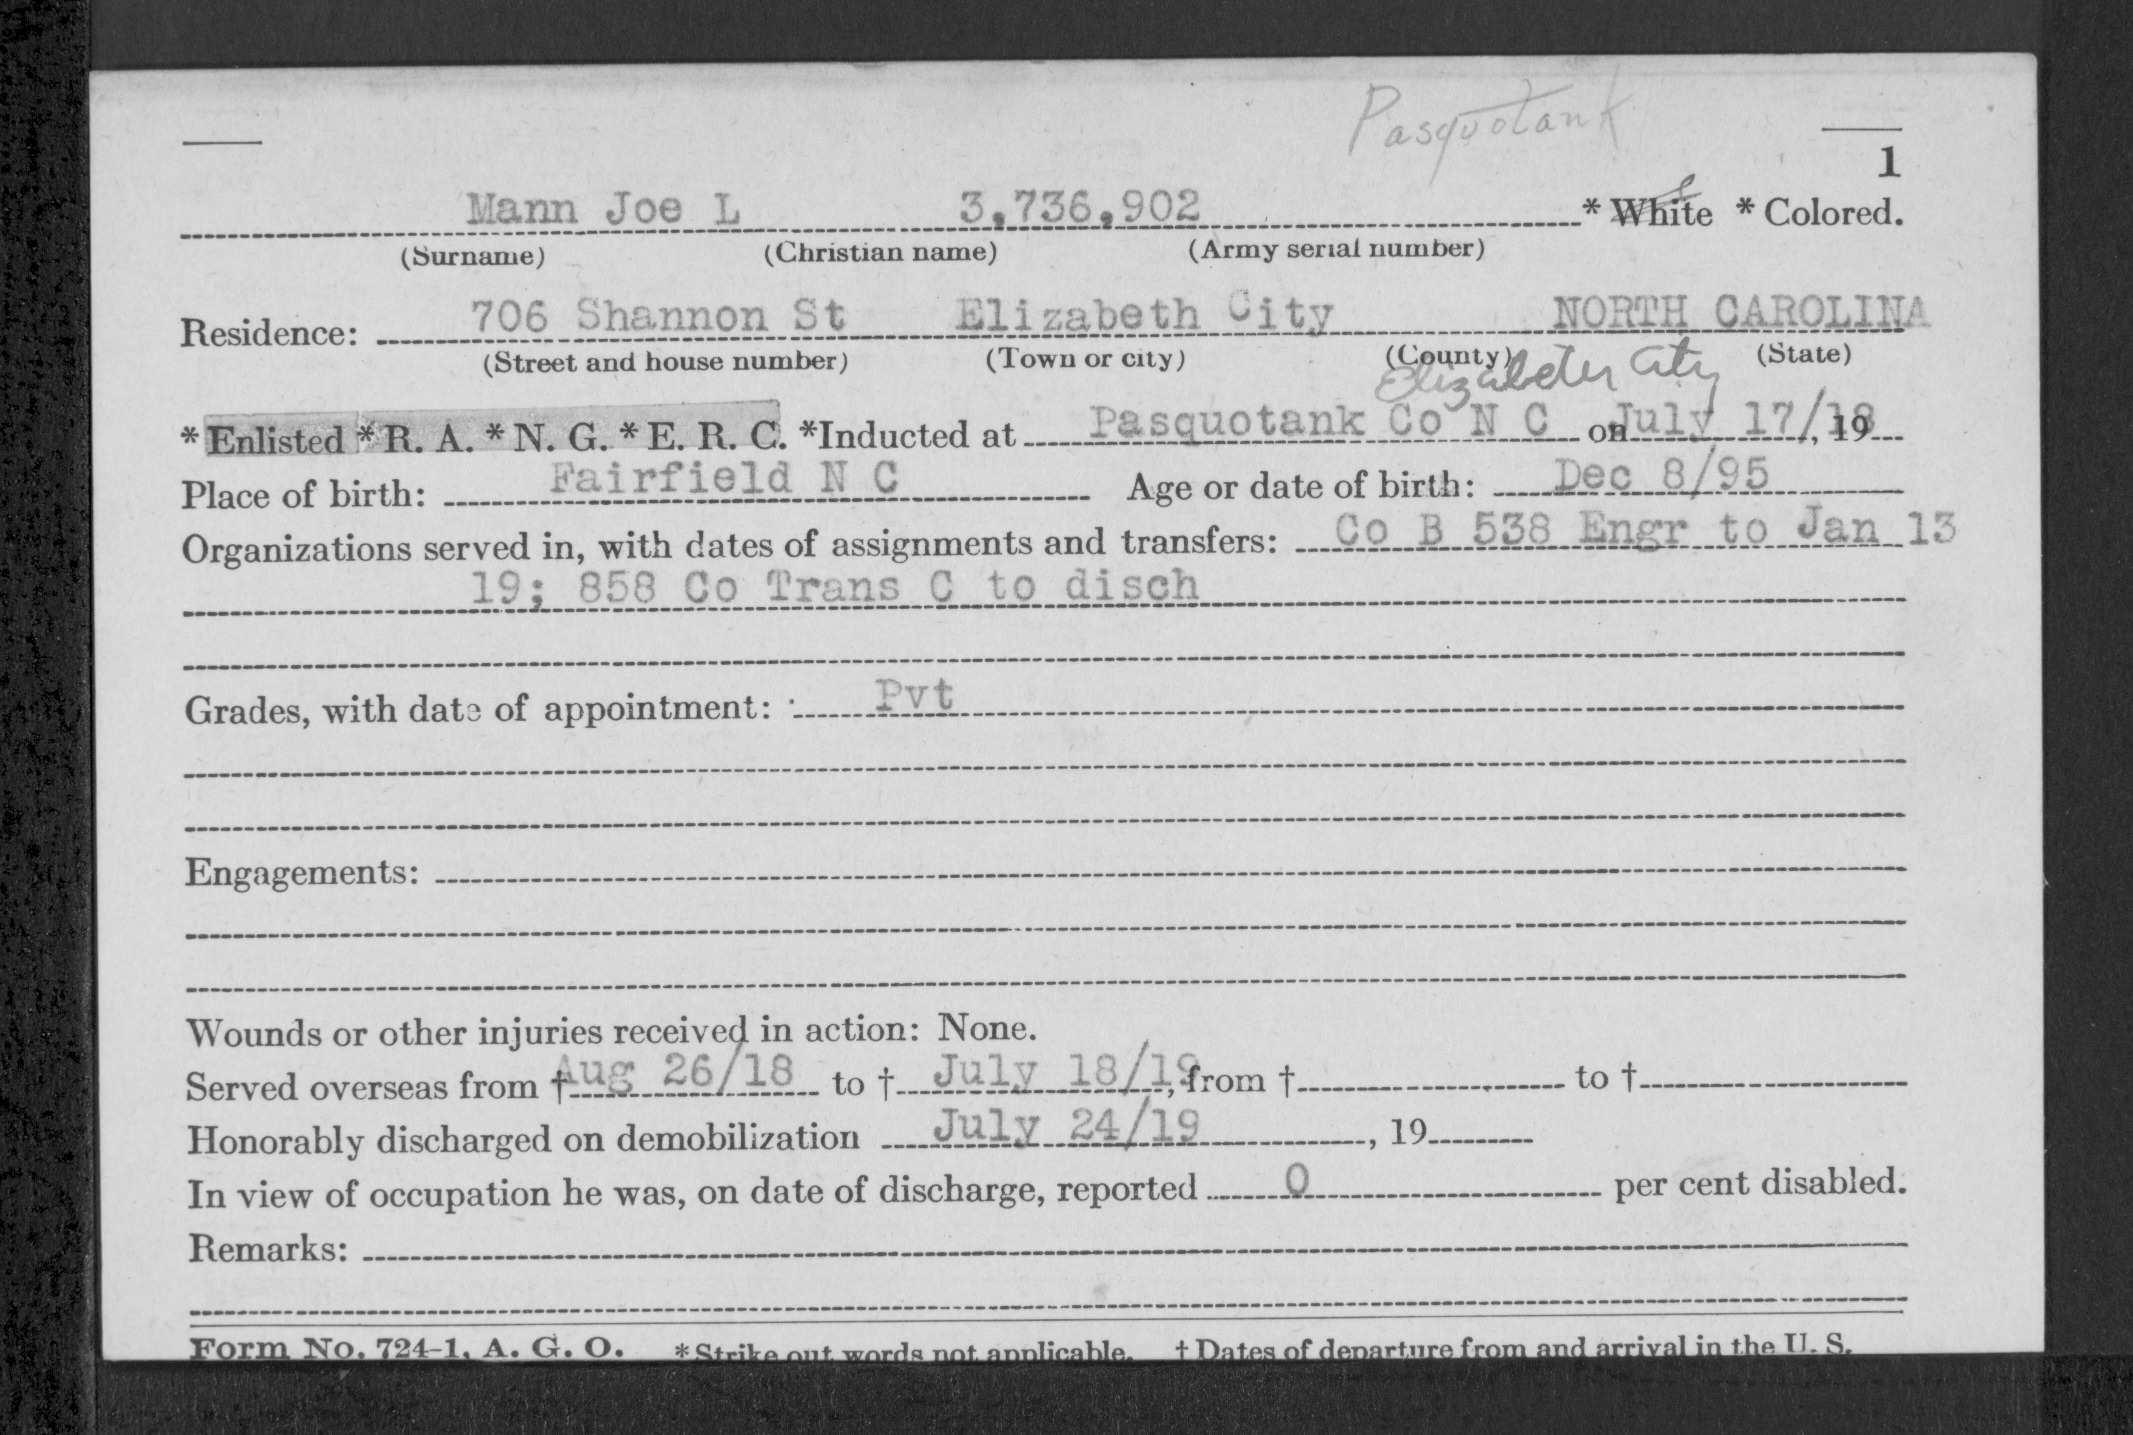 Pasquotank
1
Mann Joe L 3,736,902 * White * Colored.
(Surname) (Christian name) (Army serial number)
Residence: 706 Shannon St Elizabeth City NORTH CAROLINA
(Street and house number) (Town or city) (County) (State)
Elizabeth City
* Enlisted * R. A. * N. G. * E. R. C. *Inducted at Pasquotank Co N C on July 17/18, 19
Place of birth: Fairfield N C Age or date of birth: Dec 8/95
Organizations served in, with dates of assignments and transfers: Co B 538 Engr to Jan 13
19; 858 Co Trans C to disch
Grades, with date of appointment: Pvt
Engagements:
Wounds or other injuries received in action: None.
Served overseas from † Aug 26/18 to † July 18/19, from † to †
Honorably discharged on demobilization July 24/19, 19
In view of occupation he was, on date of discharge, reported 0 per cent disabled.
Remarks:
Form No. 724-1, A. G. O. * Strike out words not applicable. † Dates of departure from and arrival in the U. S.